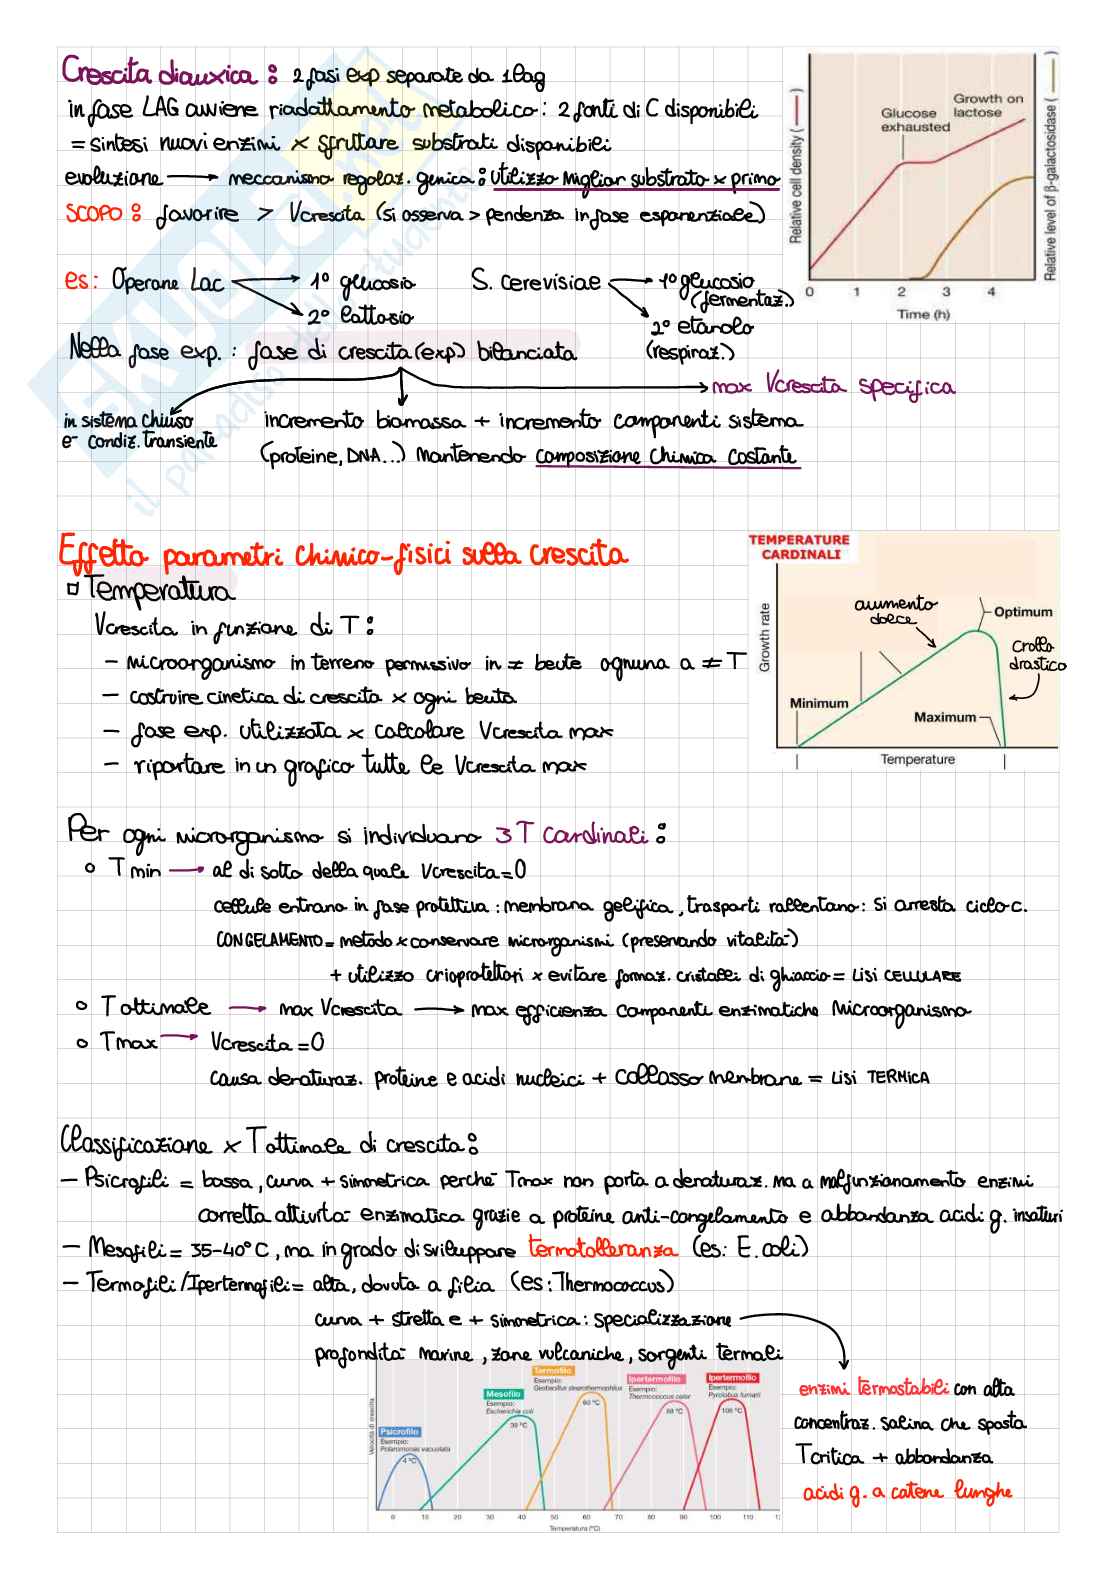 Crescita diauxica : 2 fasi exp separate da 1 lag
in fase LAG avviene riadattamento metabolico : 2 fonti di C disponibili
= sintesi nuovi enzimi x sfruttare substrati disponibili
evoluzione → meccanismo regolaz. genica : utilizzo miglior substrato x primo
SCOPO : favorire > Vcrescita (si osserva > pendenza in fase esponenziale)
Relative cell density ( — )
Glucose exhausted
Growth on lactose
Relative level of β-galactosidase ( — )
0 1 2 3 4
Time (h)
es: Operone Lac → 1° glucosio
→ 2° lattosio
S. cerevisiae → 1° glucosio (fermentaz.)
2° etanolo (respiraz.)
Nella fase exp. : fase di crescita (exp) bilanciata
→ max Vcrescita specifica
in sistema chiuso
e' condiz. transiente
incremento biomassa + incremento componenti sistema
(proteine, DNA...) mantenendo composizione chimica costante
Effetto parametri chimico-fisici sulla crescita
Temperatura
Vcrescita in funzione di T :
- microorganismo in terreno permissivo in ≠ beute ognuna a ≠ T
- costruire cinetica di crescita x ogni beuta
- fase exp. utilizzata x calcolare Vcrescita max
- riportare in un grafico tutte le Vcrescita max
TEMPERATURE
CARDINALI
Growth rate
aumento
dolce
Optimum
crollo
drastico
Minimum
Maximum
Temperature
Per ogni microrganismo si individuano 3 T cardinali :
o T min → al di sotto della quale Vcrescita = 0
cellule entrano in fase protettiva : membrana gelifica, trasporti rallentano : si arresta ciclo c.
CONGELAMENTO = metodo x conservare microrganismi (preservando vitalità)
+ utilizzo crioprotettori x evitare formaz. cristalli di ghiaccio = LISI CELLULARE
o T ottimale → max Vcrescita → max efficienza componenti enzimatiche microorganismo
o Tmax → Vcrescita = 0
causa denaturaz. proteine e acidi nucleici + collasso membrane = LISI TERMICA
Classificazione x T ottimale di crescita :
- Psicrofili = bassa, curva + simmetrica perché Tmax non porta a denaturaz. ma a malfunzionamento enzimi
corretta attività enzimatica grazie a proteine anti-congelamento e abbondanza acidi g. insaturi
- Mesofili = 35-40°C, ma in grado di sviluppare termotolleranza (es: E. coli)
- Termofili/Ipertermofili = alta, dovuta a filia (es: Thermococcus)
curva + stretta e + simmetrica : specializzazione
profondità marine, zone vulcaniche, sorgenti termali
enzimi termostabili con alta
concentraz. salina che sposta
Tcritica + abbondanza
acidi g. a catene lunghe
Velocità di crescita
Psicrofilo
Esempio:
Polaromonas vacuolata
4 °C
Mesofilo
Esempio:
Escherichia coli
39 °C
Termofilo
Esempio:
Geobacillus stearothermophilus
60 °C
Ipertermofilo
Esempio:
Thermococcus celer
88 °C
Ipertermofilo
Esempio:
Pyrolobus fumarii
106 °C
0 10 20 30 40 50 60 70 80 90 100 110
Temperatura (°C)